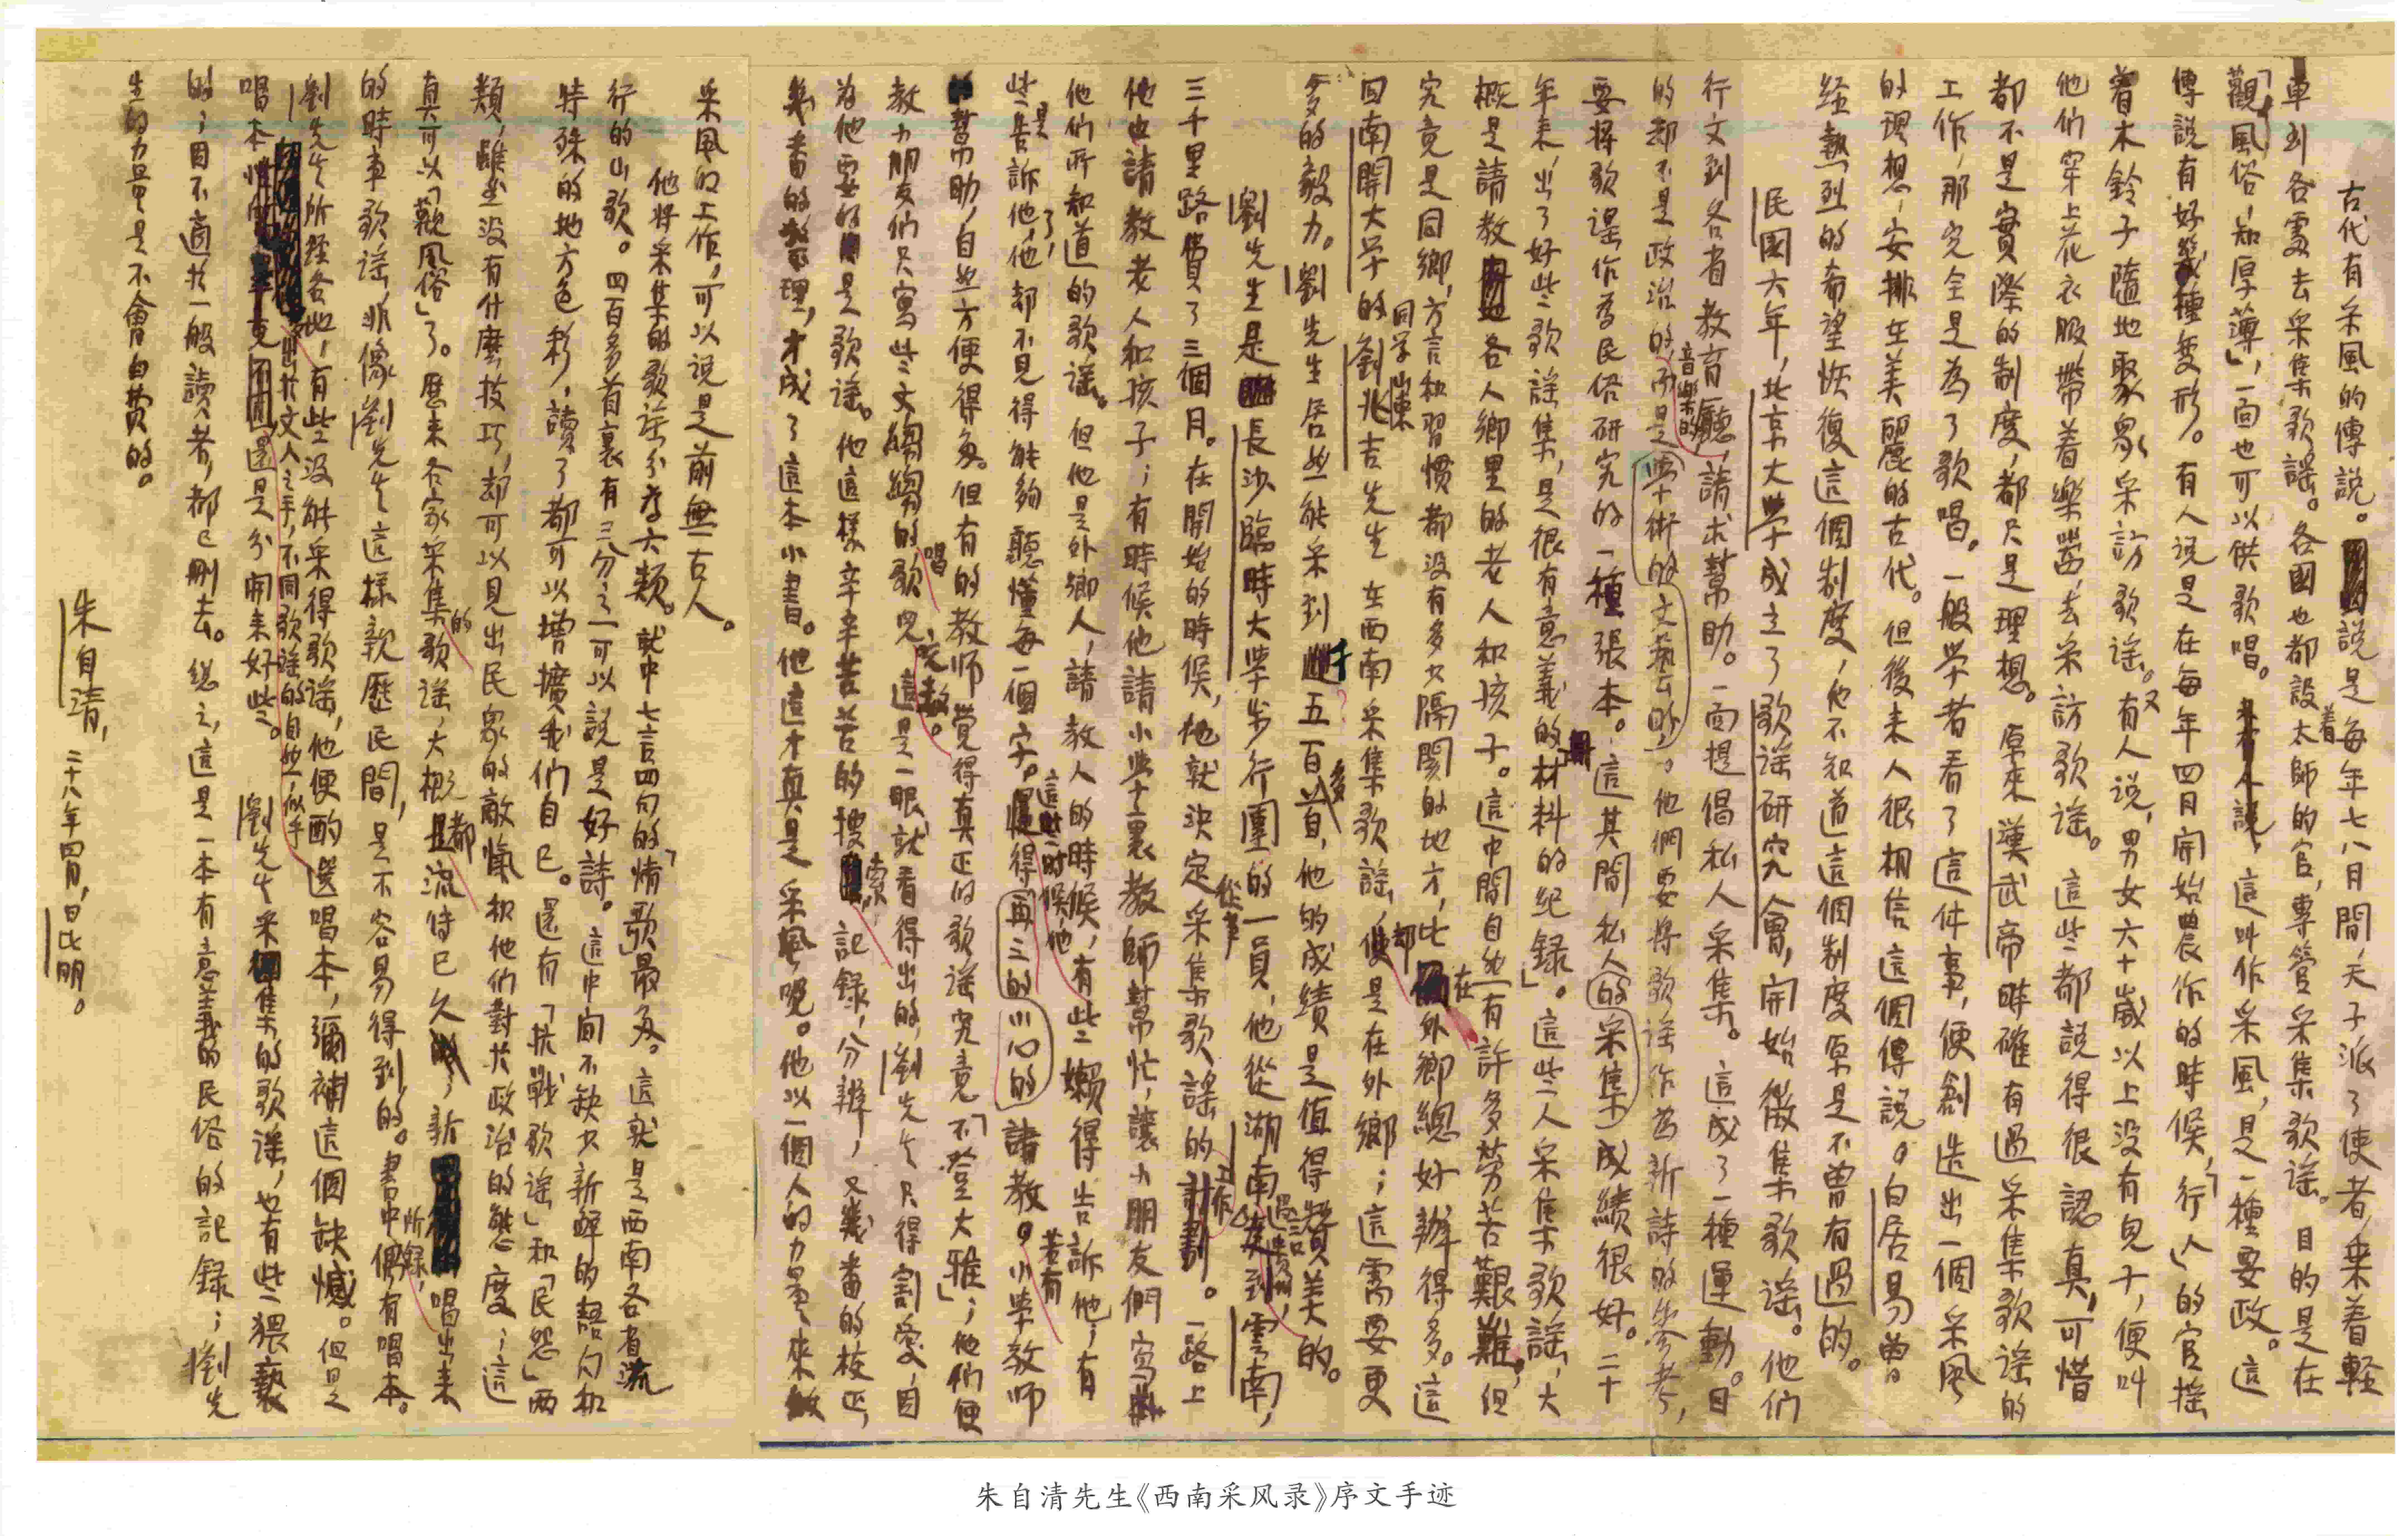 古代有采風的傳說。說是每年七八月間，天子派了使者，乘着輕
車到各處去采集歌謠。各國也都設着太師的官，專管采集歌謠。目的是在
「觀風俗，知厚薄」，一面也可以供歌唱。這叫作采風，是一種要政。這
傳說有好幾種變形。有人說是在每年四月開始農作的時候，「行人」的官搖
着木鈴子隨地聚衆采訪歌謠。又有人說，男女六十歲以上沒有兒子，便叫
他們穿上花衣服帶着樂器，去采訪歌謠。這些都說得很認真，可惜
都不是實際的制度，都只是理想。原來漢武帝時確有過采集歌謠的
工作，那完全是為了歌唱。一般學者看了這件事，便創造出一個采風
的理想，安排在美麗的古代。但後來人很相信這個傳說。白居易曾
經熱烈的希望恢復這個制度，他不知道這個制度原是不曾有過的。
民國六年，北京大學成立了歌謠研究會，開始徵集歌謠。他們
行文到各省教育廳，請求幫助。一面提倡私人采集。這成了一種運動。目
的却不是政治的，音樂的，而是文藝的，學術的。他們要將歌謠作為新詩的參考，
要將歌謠作為民俗研究的一種張本。這其間私人采集的成績很好。二十
年來出了好些歌謠集，是很有意義的材料的紀錄。這些人采集歌謠，大
概是請教各人鄉里的老人和孩子。這中間自然有許多勞苦艱難，但
究竟是同鄉，方言和習慣都沒有多少隔閡的地方，比在外鄉總好辦得多。這
回南開大學的劉兆吉先生在西南采集歌謠，却是在外鄉；這需要更
多的毅力。劉先生居然能采到五百多首，他的成績是值得讚美的。
劉先生是長沙臨時大學步行團的一員，他從湖南過貴州到雲南，
三千里路費了三個月。在開始的時候，他就決定從事采集歌謠的工作。一路上
他也請教老人和孩子；有時候他請小學裏教師幫忙，讓小朋友們寫
他們所知道的歌謠。但他是外鄉人，請教人的時候，有些懶得告訴他；有
些是告訴他了，他却不見得能夠聽懂每一個字。這些時候他得小心的再三的請教。小學教師
幫助，自然方便得多。但有的教師覺得真正的歌謠究竟「不登大雅」；他們便
教小朋友們只寫些文縐縐的唱歌兒充數。這是一眼就看得出的，劉先生只得割愛，因
為他要的是歌謠。他這樣辛辛苦苦的搜索記錄，分辨，又幾番的校正，
幾番的整理，才成了這本小書。他這才真是采風呢。他以一個人的力量來做
采風的工作，可以說是前無古人。
他將采集的歌謠分為六類。就中七言四句的「情歌」最多。這就是西南各省流
行的山歌。四百多首裏有三分之一可以說是好詩。這中間不缺少新鮮的語句和
特殊的地方色彩，讀了都可以增擴我們自己。還有「抗戰歌謠」和「民怨」兩
類，雖然沒有什麼技巧，却可以見出民衆的敵愾和他們對於政治的態度；這
真可以「觀風俗」了。歷來各家采集的歌謠，大概都流傳已久；新唱出來
的時事歌謠，非像劉先生這樣親歷民間，是不容易得到的。書中所錄，偶有唱本。
劉先生所經各地，有些沒能采得歌謠，他便酌選唱本，彌補這個缺憾。但是
唱本出於文人之手，不同歌謠的自然，似乎還是分開來好些。劉先生采集的歌謠，也有些猥褻
的；因不適於一般讀者，都已刪去。總之，這是一本有意義的民俗的記錄；劉先
生的力量是不會白費的。
朱自清，二十八年四月，昆明。
朱自清先生《西南采风录》序文手迹